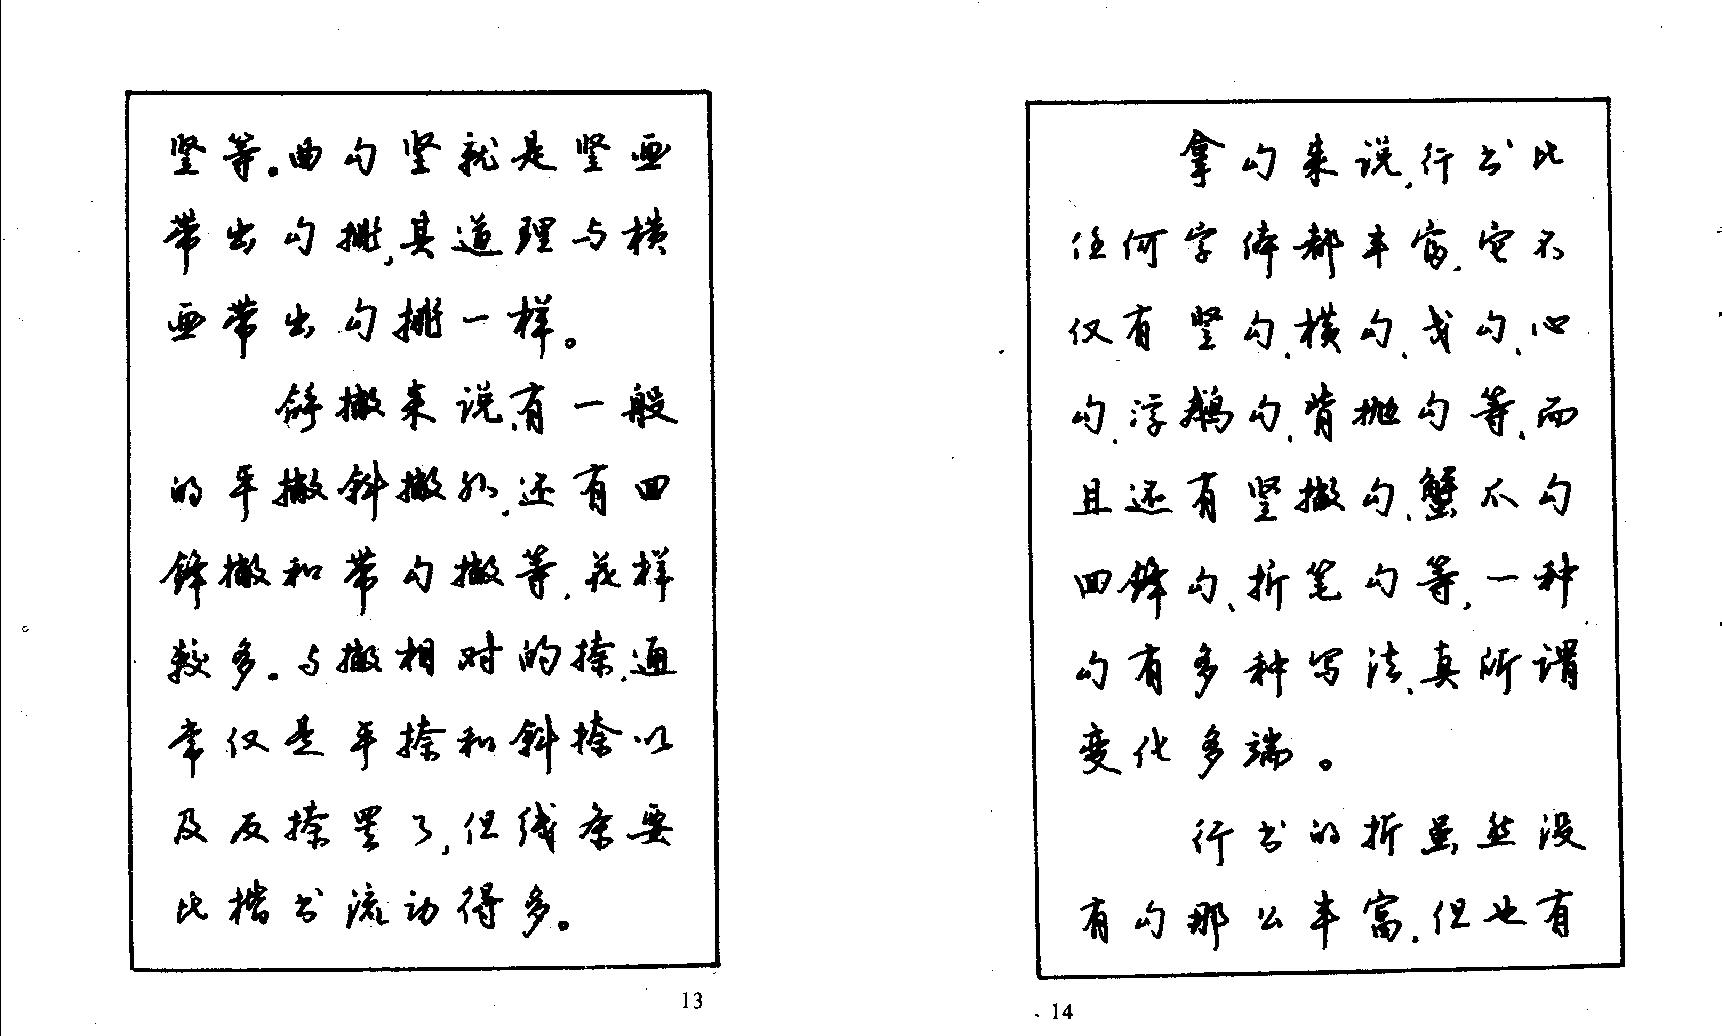 竖等。曲勾竖就是竖画
带出勾挑,其道理与横
画带出勾挑一样。
解撇来说,有一般
的平撇斜撇外,还有回
锋撇和带勾撇等,花样
较多。与撇相对的捺,通
常仅是平捺和斜捺以
及反捺罢了,但线条要
比楷书流动得多。
13
拿勾来说,行书比
任何字体都丰富,它不
仅有竖勾、横勾、戈勾、心
勾、浮鹅勾、背抛勾等,而
且还有竖撇勾、蟹爪勾
回锋勾、折笔勾等,一种
勾有多种写法,真所谓
变化多端。
行书的折虽然没
有勾那么丰富,但也有
14